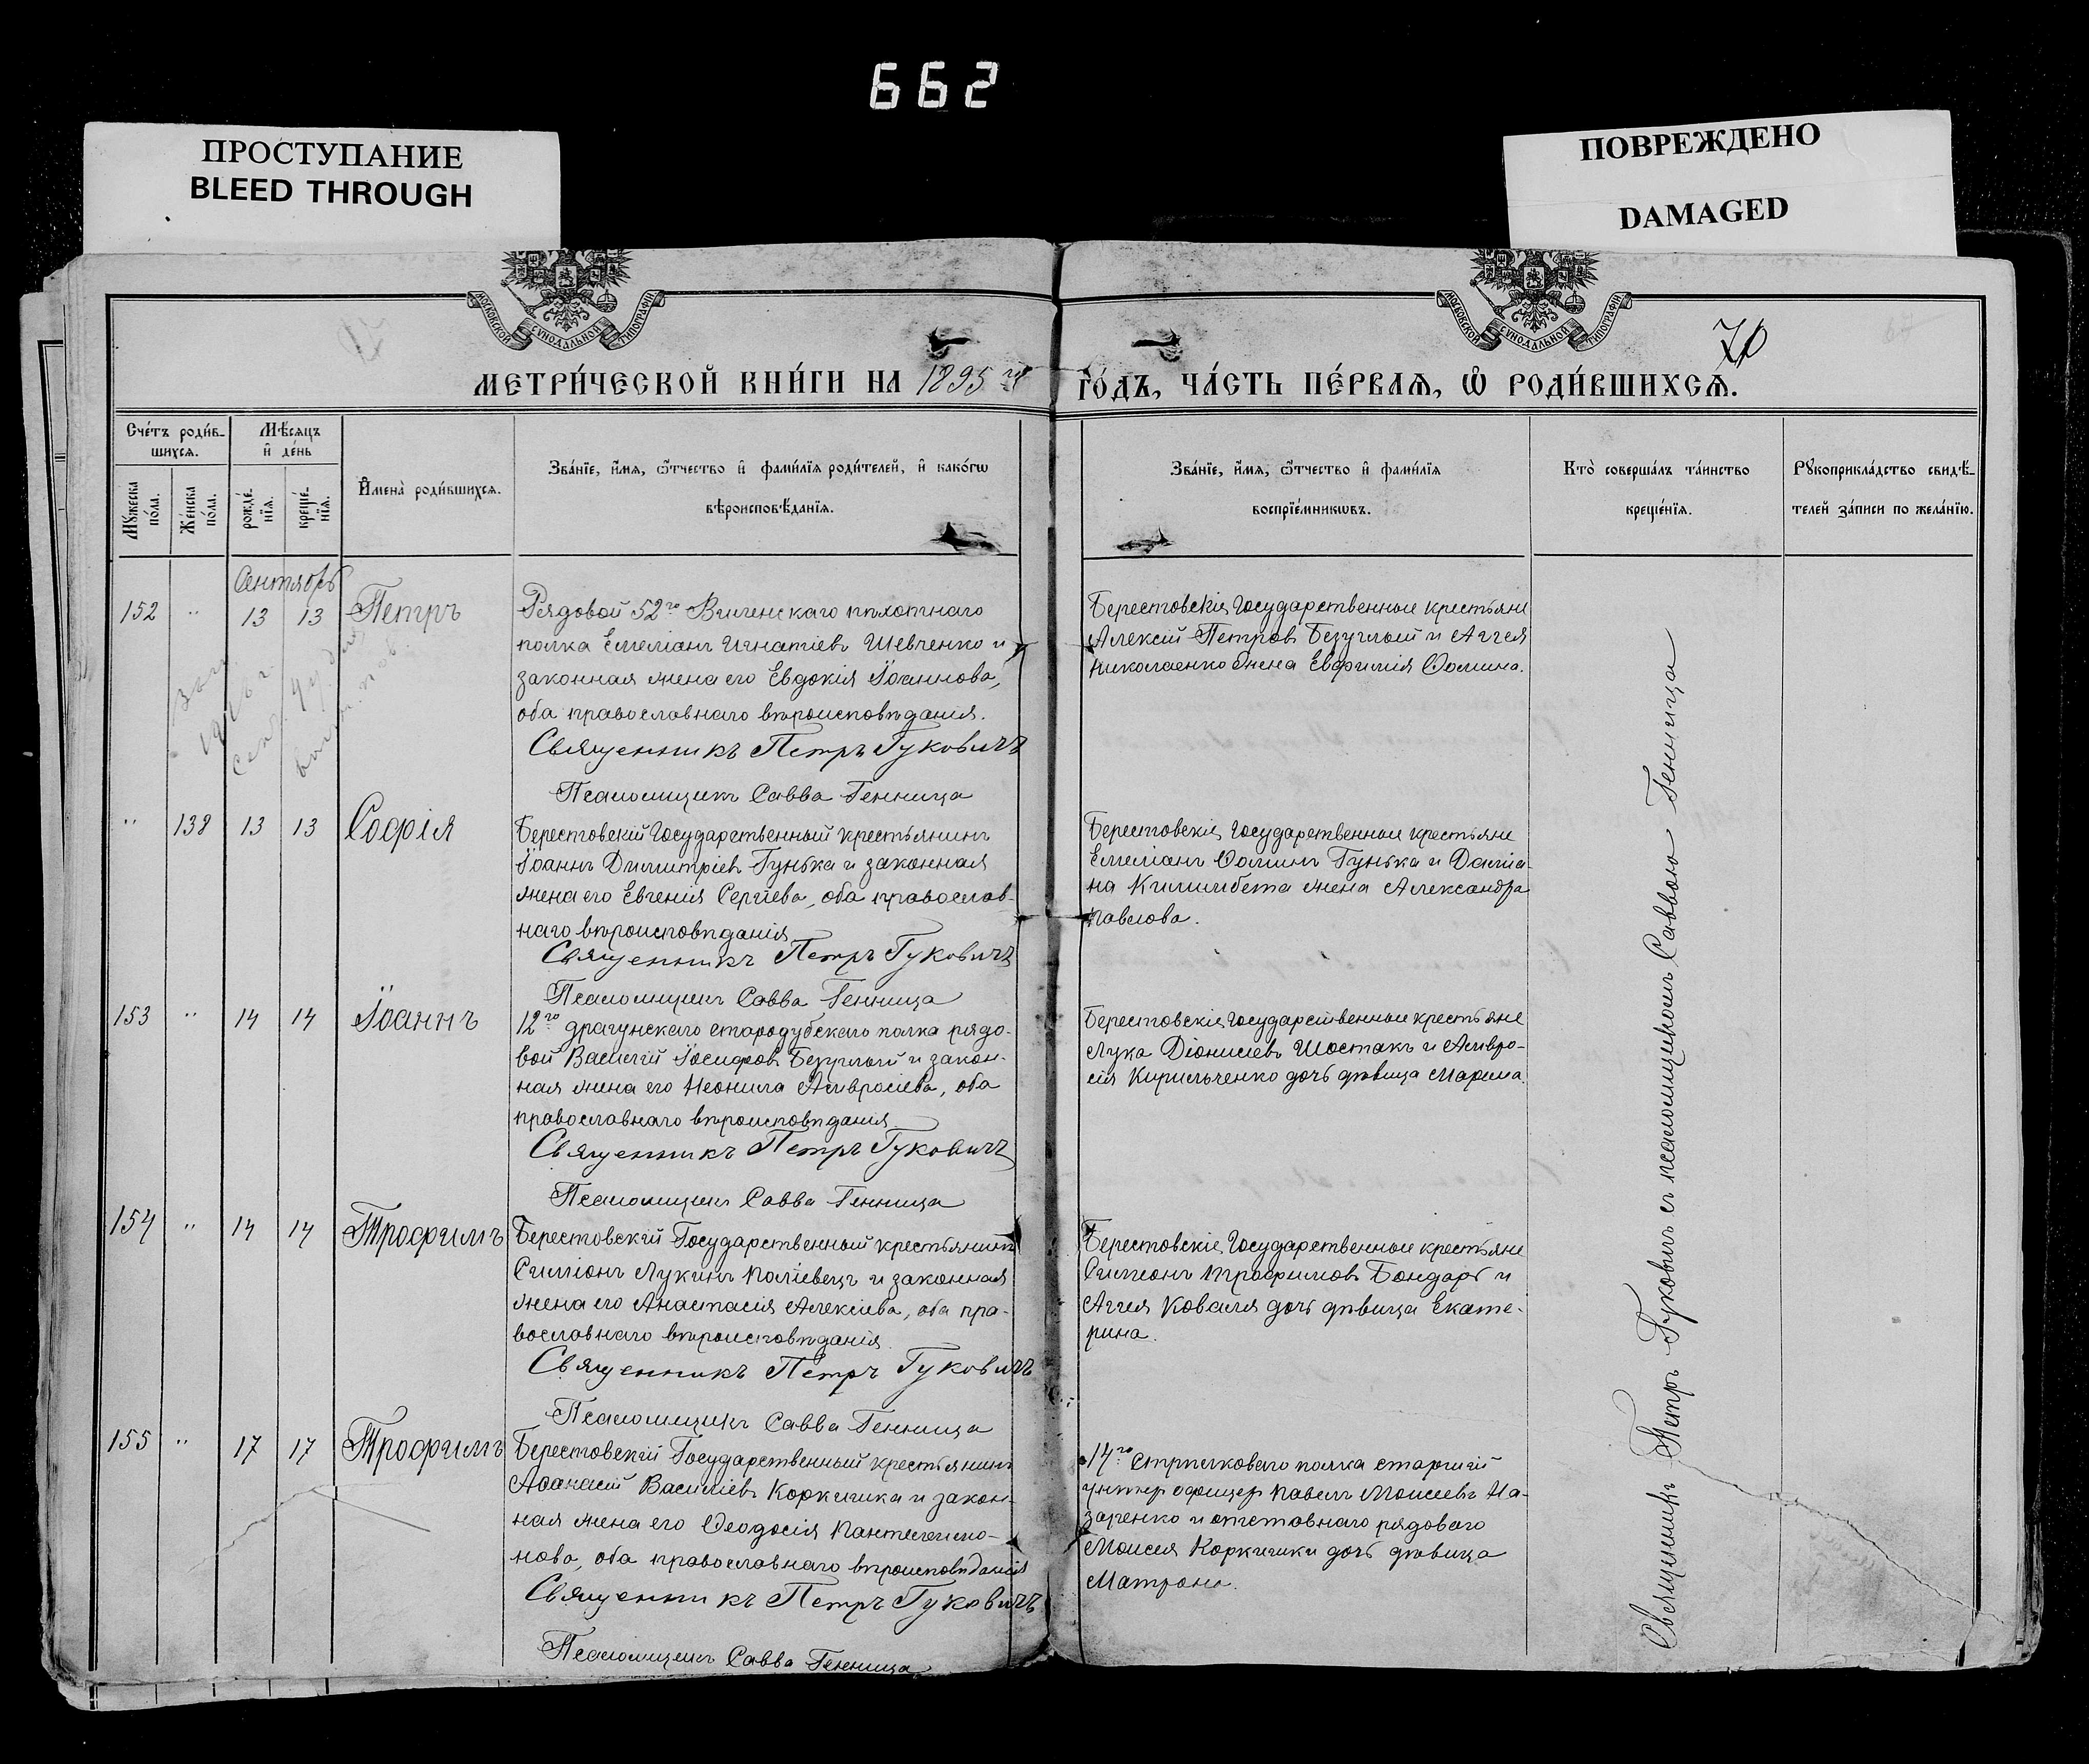 662
ПРОСТУПАНИЕ
BLEED THROUGH
ПОВРЕЖДЕНО
DAMAGED
МОСКОВСКОЙ СѴНОДАЛЬНОЙ ТИПОГРАФІИ
МОСКОВСКОЙ СѴНОДАЛЬНОЙ ТИПОГРАФІИ
70
МЕТРИ́ЧЕСКОЙ КНИ́ГИ НА 1895 го́дъ, ЧА́СТЬ ПЕ́РВАѦ, Ѡ РОДИ́ВШИХСѦ.
Сче́тъ роди́в-
шихсѧ.
Мѣ́сѧцъ
и҆ де́нь
Мꙋ́жеска по́ла.
Же́нска по́ла.
рожде́-нїѧ.
креще́-нїѧ.
И҆мена̀ роди́вшихсѧ.
Зва́нїе, и҆́мѧ, ѻ҆́тчество и҆ фами́лїѧ роди́телей, и҆ како́гѡ
вѣроисповѣ́данїѧ.
Зва́нїе, и҆́мѧ, ѻ҆́тчество и҆ фами́лїѧ
воспрїе́мникѡвъ.
Кто̀ соверша́лъ та́инство
креще́нїѧ.
Рꙋкоприкла́дство свидѣ́-
телей за́писи по жела́нїю.
Сентябрь
152 " 13 13 Петръ
Рядовой 52го Виленскаго пѣхотнаго
полка Емеліанъ Игнатіевъ Шевченко и
законная жена его Евдокія Іоаннова,
оба православнаго вѣроисповѣданія.
Священникъ Петръ Гуковичъ
Псаломщикъ Савва Генница
Берестовскіе Государственные крестьяне
Алексій Петровъ Безуглый и Аггея
Николаенко жена Евфимія Ѳомина.
" 138 13 13 Софія
Берестовскій Государственный крестьянинъ
Іоаннъ Димитріевъ Гунька и законная
жена его Евгенія Сергіева, оба православ-
наго вѣроисповѣданія
Священникъ Петръ Гуковичъ
Псаломщикъ Савва Генница
Берестовскіе Государственные крестьяне
Емеліанъ Ѳоминъ Гунька и Даміа-
на Килимбета жена Александра
Павлова.
153 " 14 14 Іоаннъ
12го драгунскаго стародубскаго полка рядо-
вой Василій Іосифовъ Безуглый и закон-
ная жена его Неонила Амвросіева, оба
православнаго вѣроисповѣданія
Священникъ Петръ Гуковичъ
Псаломщикъ Савва Генница
Берестовскіе Государственные крестьяне
Лука Діонисіевъ Шостакъ и Амвро-
сія Кирильченко дочь дѣвица Марина.
154 " 14 14 Трофимъ
Берестовскій Государственный крестьянинъ
Симіонъ Лукинъ Поліевецъ и законная
жена его Анастасія Алексіева, оба пра-
вославнаго вѣроисповѣданія
Священникъ Петръ Гуковичъ
Псаломщикъ Савва Генница
Берестовскіе Государственные крестьяне
Симеонъ Трофимовъ Бондарь и
Аггея Коваля дочь дѣвица Екате-
рина.
155 " 17 17 Трофимъ
Берестовскій Государственный крестьянинъ
Аѳанасій Василіевъ Коркишка и закон-
ная жена его Ѳеодосія Пантелеимо-
нова, оба православнаго вѣроисповѣданія
Священникъ Петръ Гуковичъ
Псаломщикъ Савва Генница
14го стрѣлковаго полка старшій
унтеръ офицеръ Павелъ Моисеевъ На-
заренко и отставнаго рядоваго
Моисея Коркишки дочь дѣвица
Матрона.
Священникъ Петръ Гуковичъ съ псаломщикомъ Саввою Генница